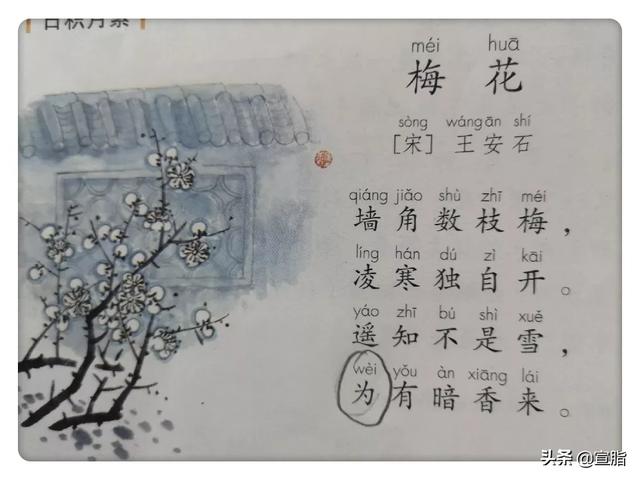 日积月累
méi huā
梅 花
sòng wángān shí
[宋] 王安石
qiáng jiǎo shù zhī méi
墙角数枝梅，
líng hán dú zì kāi
凌寒独自开。
yáo zhī bú shì xuě
遥知不是雪，
wèi yǒu àn xiāng lái
为有暗香来。
头条 @宣脂